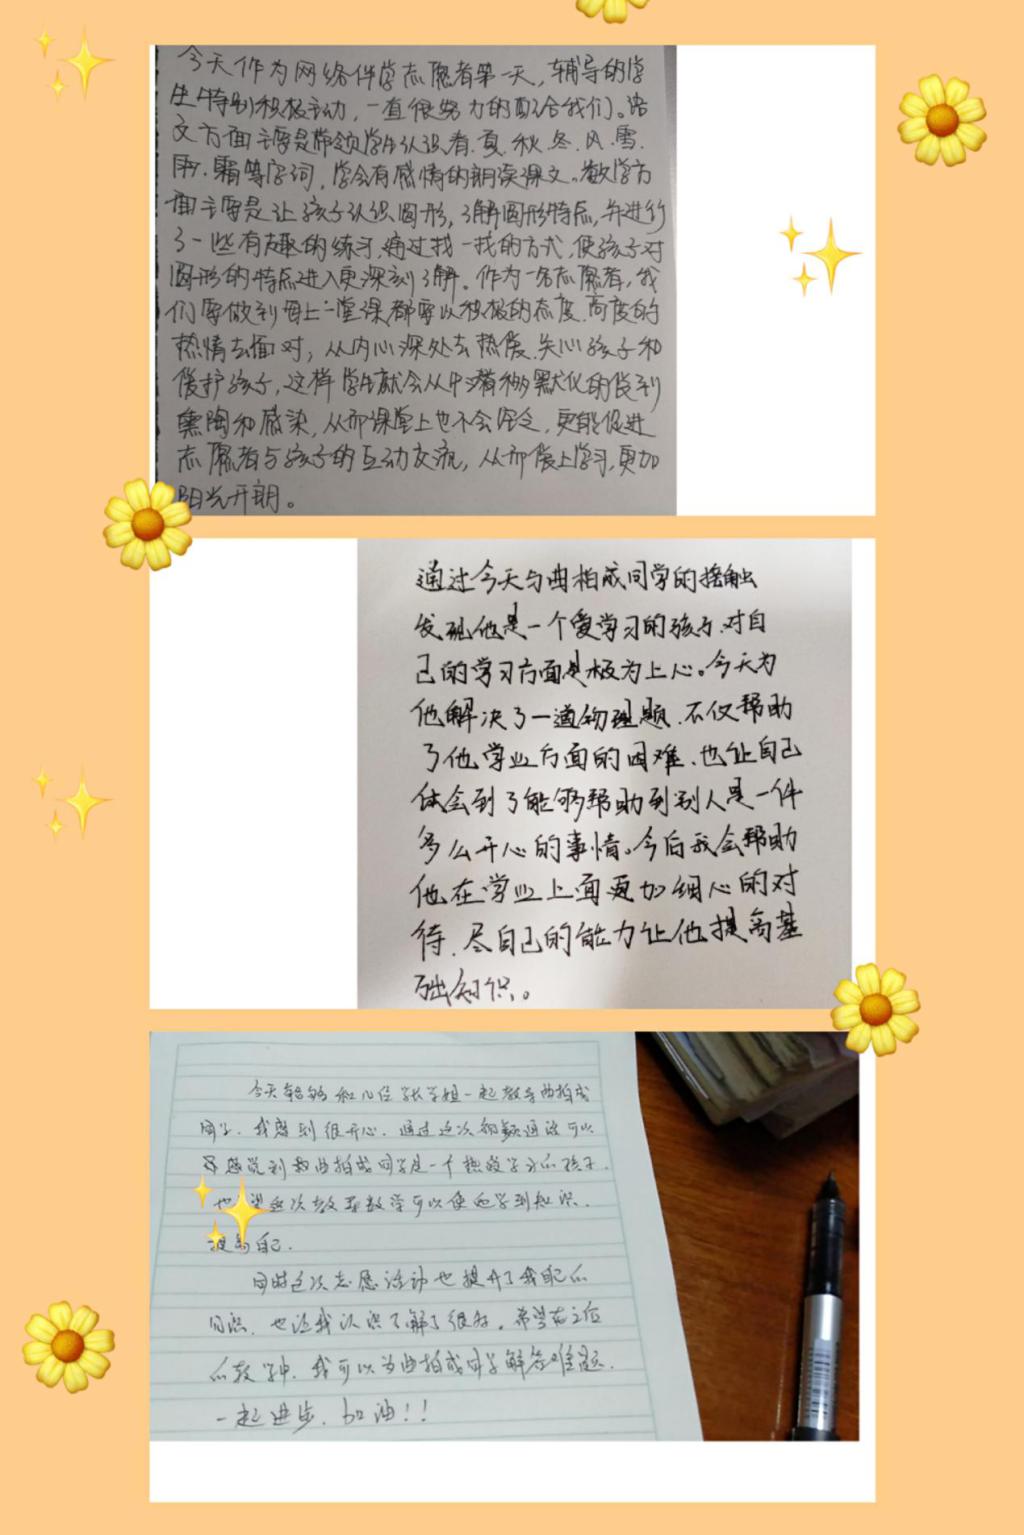 今天作为网络伴学志愿者第一天,辅导的学
生特别积极主动,一直很努力的配合我们。语
文方面主要是带领学生认识春.夏.秋.冬.风.雪.
雨.霜等字词,学会有感情的朗读课文。数学方
面主要是让孩子认识圆形,了解圆形特点,并进行
了一些有趣的练习,通过找一找的方式,使孩子对
圆形的特点进入更深刻了解。作为一名志愿者,我
们要做到每上一堂课都要以积极的态度.高度的
热情去面对,从内心深处去热爱.关心孩子和
爱护孩子,这样学生就会从中潜移默化的受到
熏陶和感染,从而课堂上也不会泛,更能促进
志愿者与孩子的互动交流,从而爱上学习,更加
阳光开朗。
通过今天与曲柏成同学的接触
发现他是一个爱学习的孩子.对自
己的学习方面是极为上心。今天为
他解决了一道物理题.不仅帮助
了他学业方面的困难.也让自己
体会到了能够帮助到别人是一件
多么开心的事情。今后我会帮助
他在学业上面更加细心的对
待.尽自己的能力让他提高基
础知识。
今天能够和学姐一起教导曲柏成
同学.我感到很开心.通过这次视频通话可以
感觉到曲柏成同学是一个热爱学习的孩子.
也这次教学可以使他学到知识.
提高自己.
同时这次志愿活动也提升了我自己的
知识.也让我认识了解了很多。希望在之后
的教学中.我可以为曲柏成同学解答难题.
一起进步.加油!!